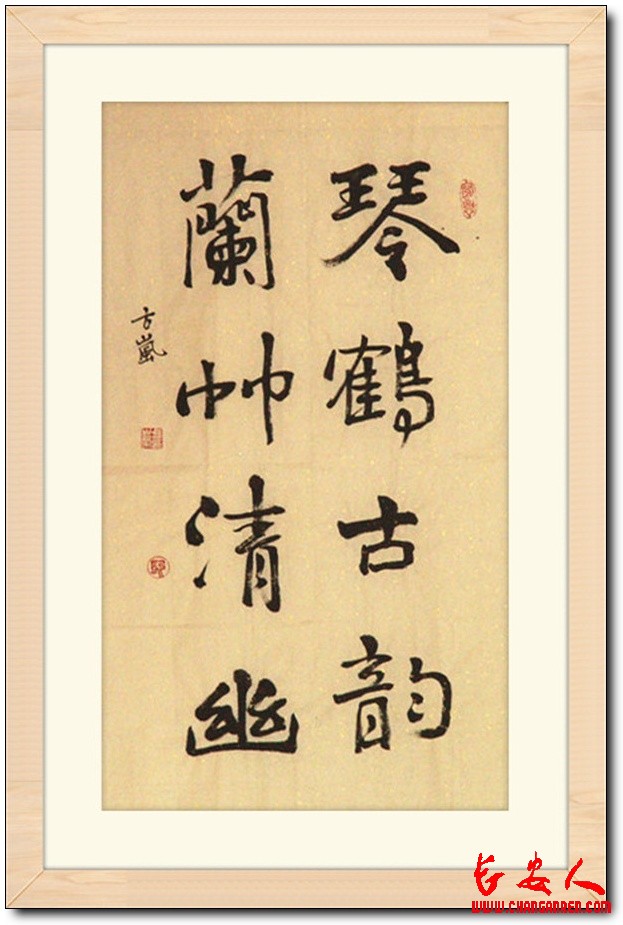 琴鶴古韵
蘭艸清幽
方嵐
长安人
WWW.CHANGANREN.COM